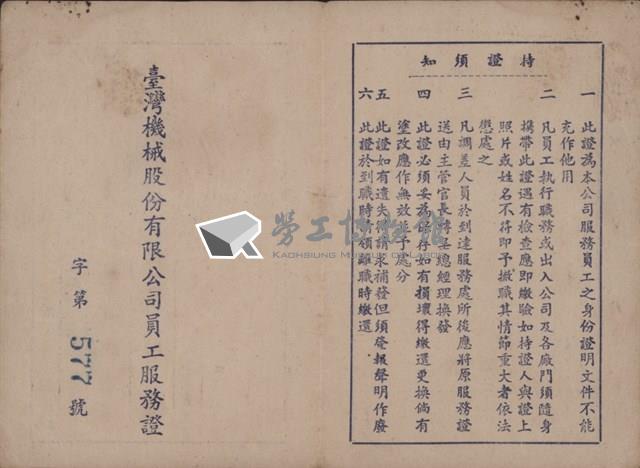 持證須知
一 此證為本公司服務員工之身份證明文件不能
充作他用
二 凡員工執行職務或出入公司及各廠門須隨身
攜帶此證遇有檢查應即繳驗如持證人與證上
照片或姓名不符即予撤職其情節重大者依法
懲處之
三 凡調差人員於到達服務處所後應將原服務證
送由主管官長轉呈總經理換發
四 此證必須妥為保存如有損壞得繳還更換倘有
塗改應作無效並予處分
五 此證如有遺失得請求補發但須登報聲明作廢
六 此證於到職時請領離職時繳還
臺灣機械股份有限公司員工服務證
字第577號
勞工博物館
KAOHSIUNG MUSEUM OF LABOR